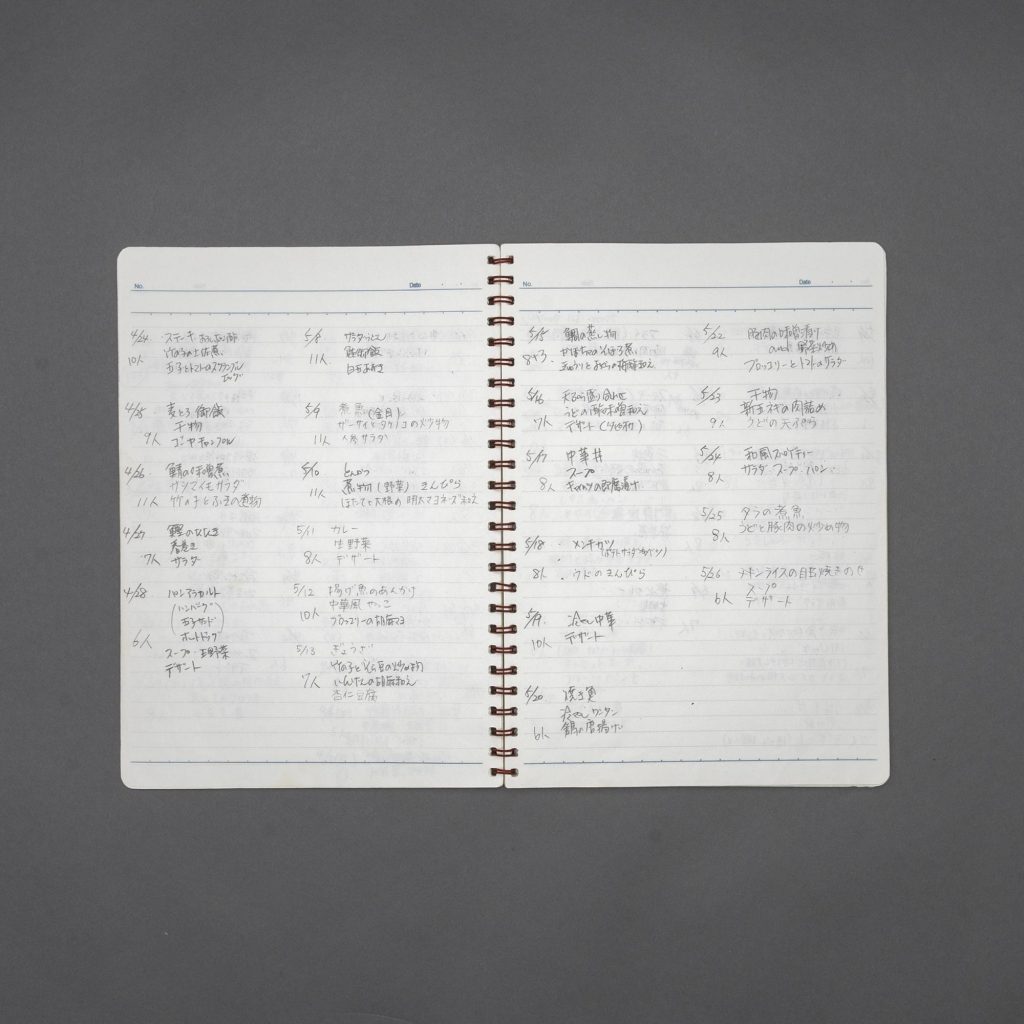 No.
Date
4/24 ステーキ おろしポン酢
10人 竹の子の土佐煮
玉子とトマトのスクランブル
エッグ
4/25 麦とろ御飯
干物
9人 ゴーヤチャンプル
4/26 鯖の味噌煮
サツマイモサラダ
11人 竹の子とふきの煮物
4/27 鰹のたたき
春巻き
7人 サラダ
4/28
(ハンバーグ
玉子サンド
ホットドッグ)
6人
スープ 生野菜
デザート
5/8
11人
5/9 煮魚(金目)
ザーサイとタケノコの炒め物
11人 人参サラダ
5/10 とんかつ
11人 煮物(野菜) きんぴら
ほたてと大根の明太マヨネーズ和え
5/11 カレー
生野菜
8人 デザート
5/12 揚げ魚のあんかけ
中華風やっこ
10人 ブロッコリーの胡麻マヨ
5/13 ぎょうざ
竹の子とそら豆の炒め物
7人 いんげんの胡麻和え
杏仁豆腐
No.
Date
5/15 鯛の蒸し物
8+3 かぼちゃのそぼろ煮
5/16 天ぷら盛り合わせ
うどの酢味噌和え
7人 デザート
5/17 中華丼
スープ
8人
5/18 メンチカツ
(ポテトサラダ キャベツ)
8人 ウドのきんぴら
5/19 冷やし中華
10人 デザート
5/20
冷やしワンタン
6人 鶏の唐揚げ
5/22 豚肉の味噌漬け
9人 and 野菜炒め
ブロッコリーとトマトのサラダ
5/23 干物
新玉ネギの肉詰め
9人 うどの天ぷら
5/24 和風スパゲティー
サラダ スープ パン
8人
5/25 タラの煮魚
うどと豚肉の炒め物
8人
5/26 チキンライスの目玉焼きのせ
スープ
6人 デザート